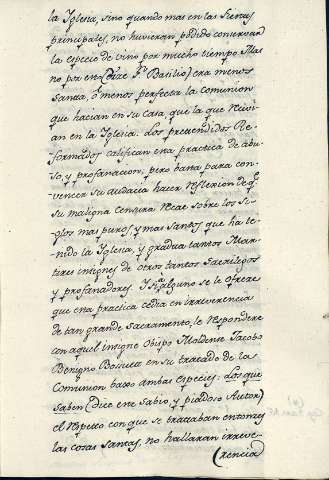 la Yglesia, sino quando mas en las fiestas
principales, no huvieran podido conservar
la especie de vino por mucho tiempo. Mas
no por eso (dice Sn. Basilio) era menos
santa, ó menos perfecta la comunion
que hacian en su casa, que la que recivi-
an en la Yglesia. Los pretendidos Re-
formados califican esta practica de abu-
so, y profanacion; pero basta para con-
vencer su audacia hacer reflexion de qe.
su maligna censura recae sobre los si-
glos mas puros, y mas santos que ha te-
nido la Yglesia, y gradua tantos Mar-
tires insignes de otros tantos sacrilegos
y profanadores. Y si á alguno se le ofrece
que esta practica cedia en irreverencia
de tan grande Sacramento, le respondere
con aquel insigne Obispo Meldense Jacobo
Benigno Bossuet en su tratado de la
Comunion baxo ambas especies: Los que
saben (dice este sabio, y piadoso Autor)
el respeto con que se trataban entonces
las cosas santas, no hallaran irreve-
(rencia